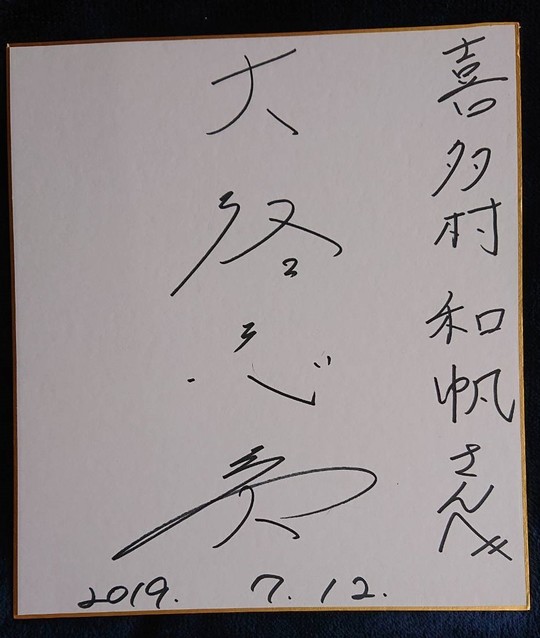 喜多村和帆さんへ
大
2019. 7. 12.